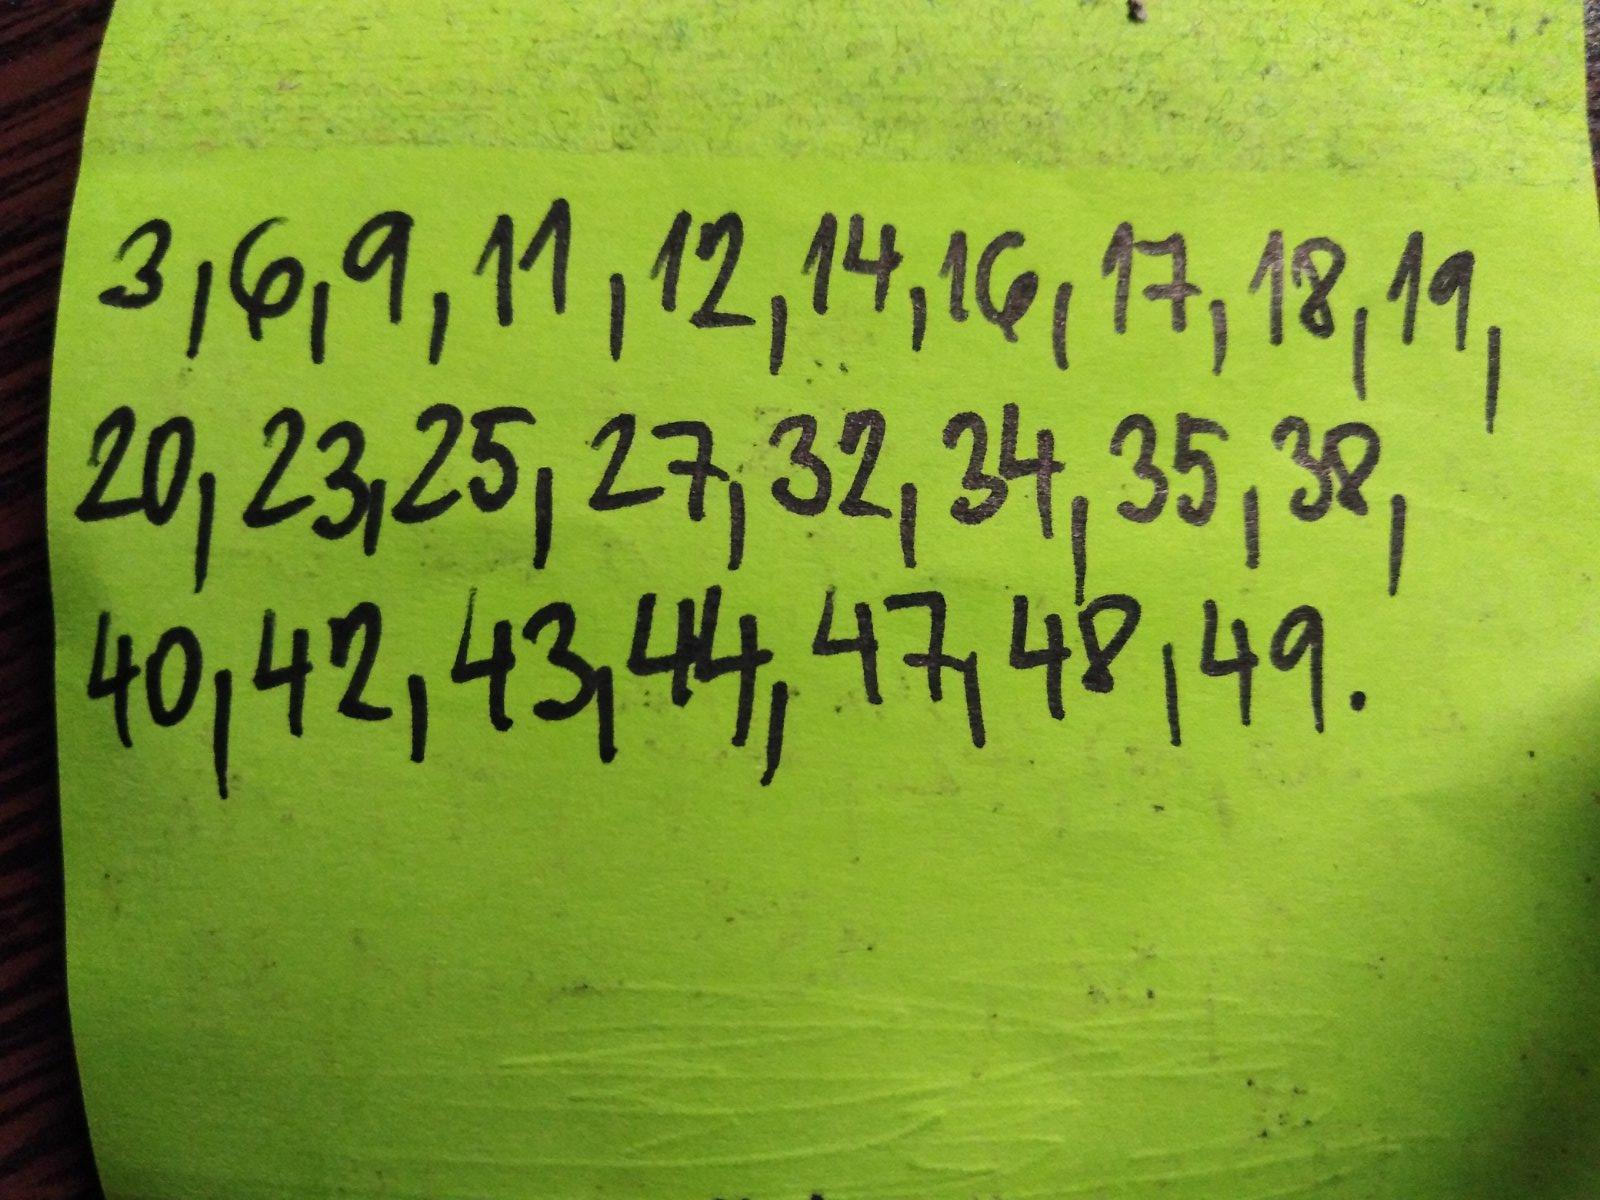 3, 6, 9, 11, 12, 14, 16, 17, 18, 19,
20, 23, 25, 27, 32, 34, 35, 38,
40, 42, 43, 44, 47, 48, 49.